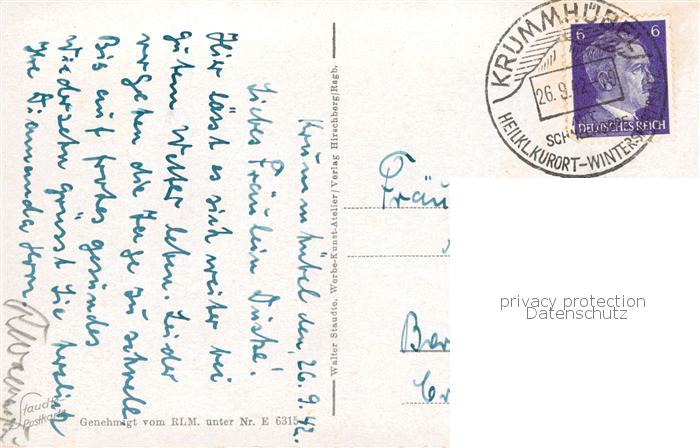 Krummhübel den, 26. 9. 42.
Liebes Fräulein Duske!
Hier lässt es sich weiter bei
gutem Wetter leben. Leider
vergehen die Tage zu schnell.
Bis auf frohes gesundes
Wiedersehn grüsst Sie herzlich
Ihre
Genehmigt vom RLM. unter Nr. E 6315
Walter Staudte, Werbe-Kunst-Atelier/Verlag Hirschberg/Rsgb.
KRUMMHÜBEL
26.9.42
HEILKLKURORT-WINTERS
6 6
DEUTSCHES REICH
Fräu
privacy protection
Datenschutz
Postkarte